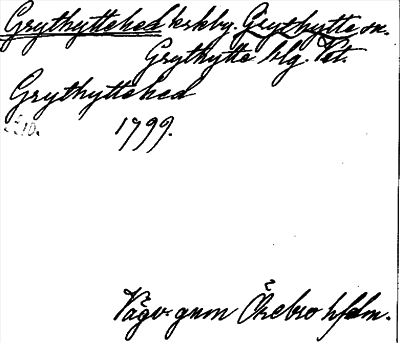 Grythyttehed krkby. Grythytte sn.
Grythytte blg. Vstm.
Grythyttehed
1799.
Vägv. gnm Örebro hfdm.